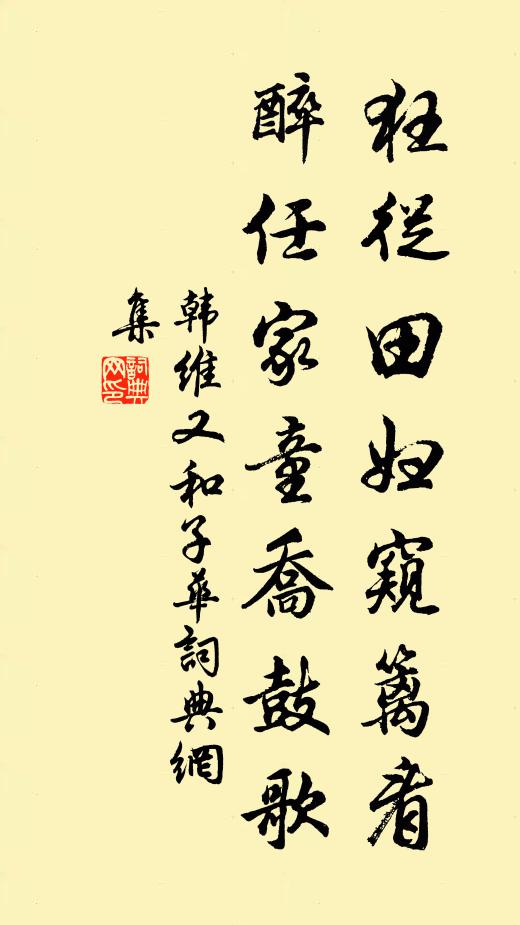 狂從田妇窺篱看
醉任家童喬鼓歌
韩维又和子華詞典網
集
詞典
网印